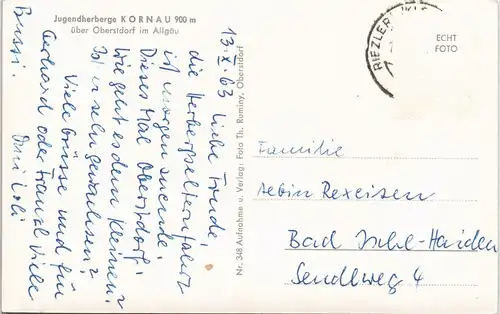 Jugendherberge KORNAU 900 m
über Oberstdorf im Allgäu
13.X.63 Liebe Trude,
die Herbergselternfahrt
ist morgen zu ende.
Dieses Mal Oberstdorf.
Wie geht es dem Kleinen?
Ist er sehr gewachsen?
Viele Grüsse und für
Gerhard oder Franzl viele
Bussi.
Nr. 348 Aufnahme u. Verlag: Foto Th. Rominy, Oberstdorf
RIEZLER
ECHT
FOTO
Familie
Rexeisen
Bad Ischl-Haiden
Sendlweg 4